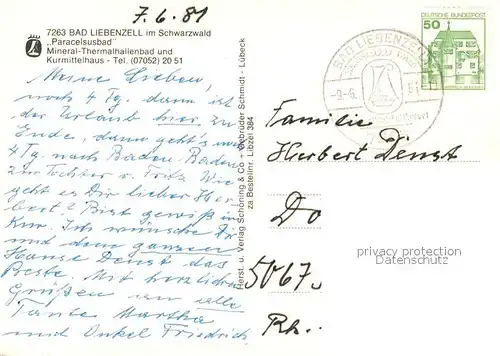 7.6.81
7263 BAD LIEBENZELL im Schwarzwald
„Paracelsusbad"
Mineral-Thermalhallenbad und
Kurmittelhaus - Tel. (07052) 20 51
Meine Lieben,
noch 4 Tg. dann ist
der Urlaub hier zu
Ende, dann geht's noch
4 Tg nach Baden-Baden
zur Tochter u. Fritz. Wie
geht es Dir lieber Her-
bert? Bist gewiß in
Kur. Ich wünsche Dir
und dem ganzen
Hause Denst das
Beste. Mit herzlichen
Grüßen an alle
Tante Martha
und Onkel Friedrich
Herst. u. Verlag Schöning & Co + Gebrüder Schmidt - Lübeck
za Bestellnr. Libzel 384
BAD LIEBENZELL
-9.-6. 81
DEUTSCHE BUNDESPOST
50
Familie
Herbert Denst
Do
5067
Rh.
privacy protection
Datenschutz